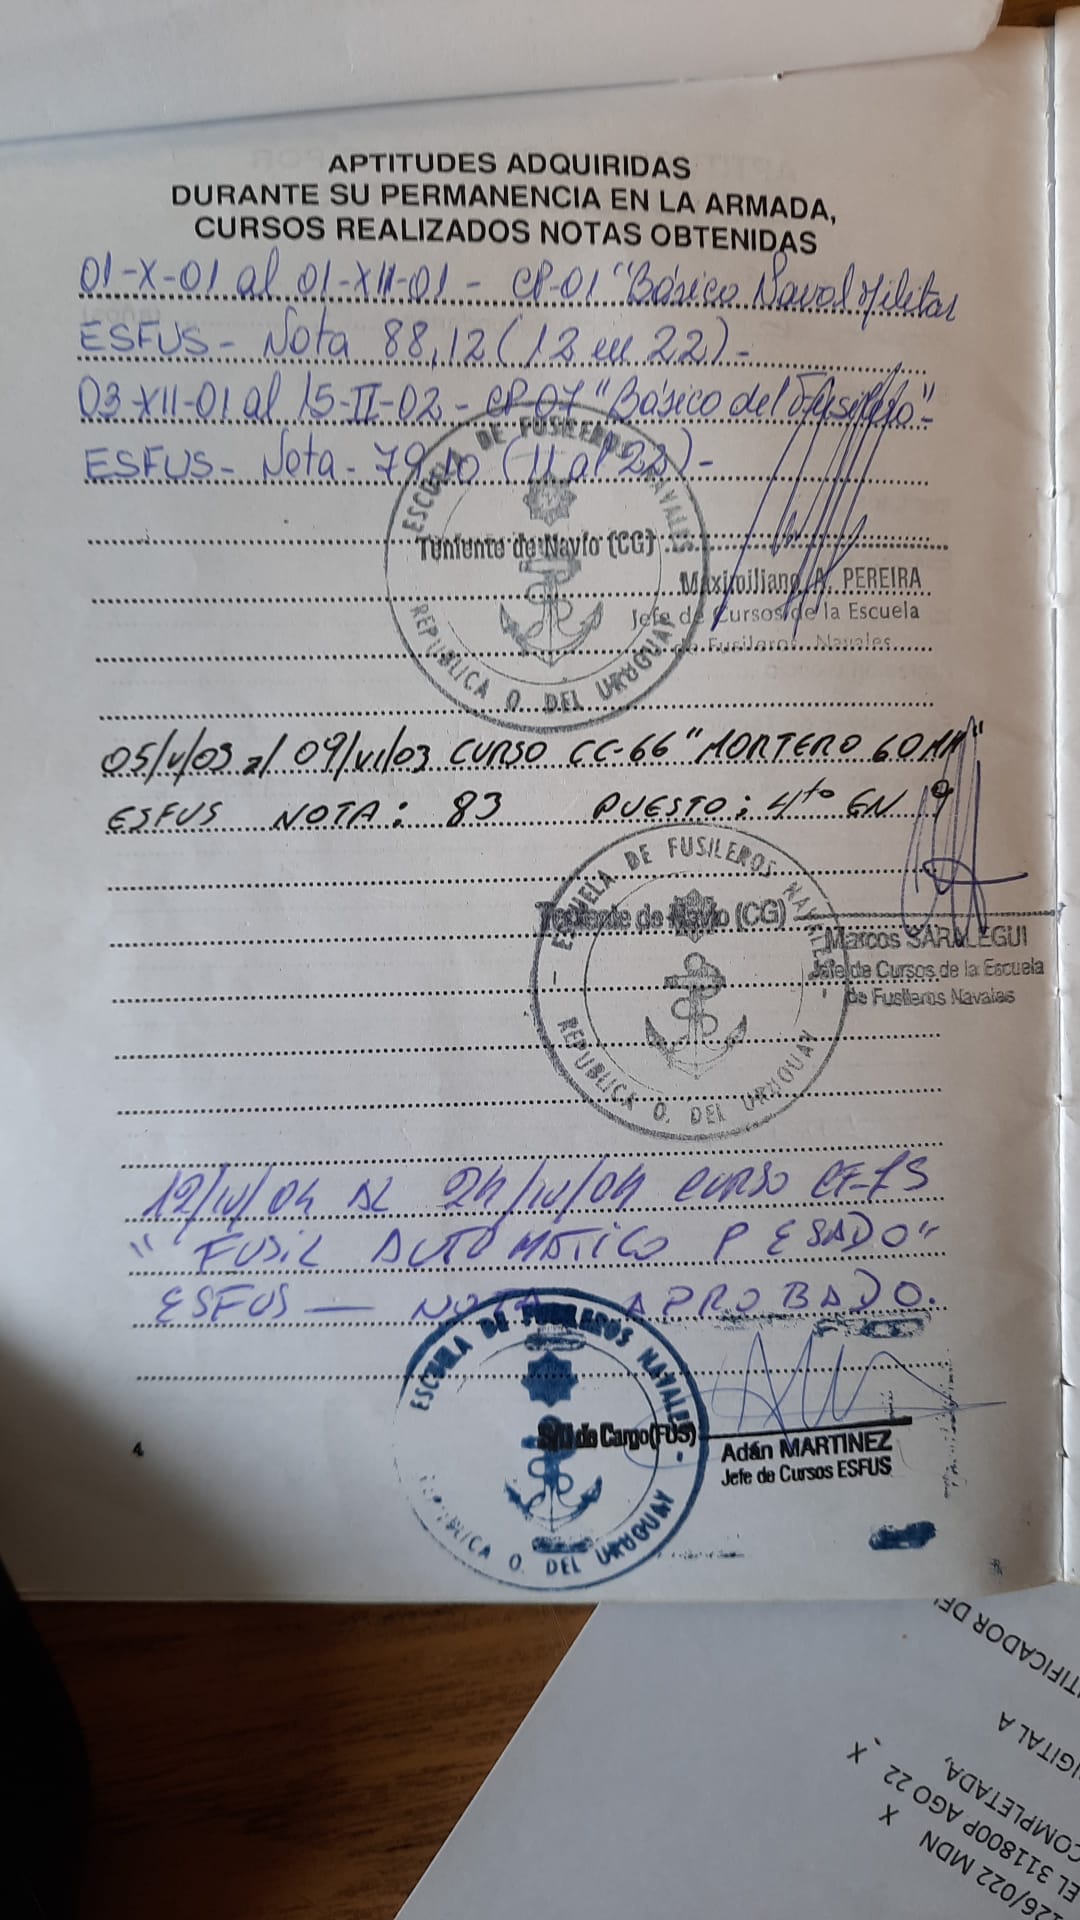 APTITUDES ADQUIRIDAS
DURANTE SU PERMANENCIA EN LA ARMADA,
CURSOS REALIZADOS NOTAS OBTENIDAS
01-X-01 al 01-XII-01 - CP-01 "Básico Naval Militar
ESFUS - Nota 88,12 (12 en 22) -
03-XII-01 al 15-II-02 - CP-07 "Básico del Fusilero" -
ESFUS - Nota - 79,10 (11 al 22) -
ESCUELA DE FUSILEROS NAVALES
Teniente de Navío (CG)
Maximiliano A. PEREIRA
Jefe de Cursos de la Escuela
de Fusileros Navales
REPUBLICA O. DEL URUGUAY
05/V/03 al 09/VI/03 CURSO CC-66 "MORTERO 60MM"
ESFUS NOTA: 83 PUESTO: 4to EN 9
ESCUELA DE FUSILEROS NAVALES
Teniente de Navío (CG)
Marcos SARALEGUI
Jefe de Cursos de la Escuela
de Fusileros Navales
REPUBLICA O. DEL URUGUAY
12/IV/04 AL 24/IV/04 CURSO
"FUSIL AUTOMÁTICO PESADO"
ESFUS — NOTA APROBADO.
ESCUELA DE FUSILEROS NAVALES
de Cargo (FUS)
Adán MARTINEZ
Jefe de Cursos ESFUS
4
REPUBLICA O. DEL URUGUAY
TIFICADOR DE
IGITAL A
COMPLETADA,
EL 311800P AGO 22 X
126/022 MDN X